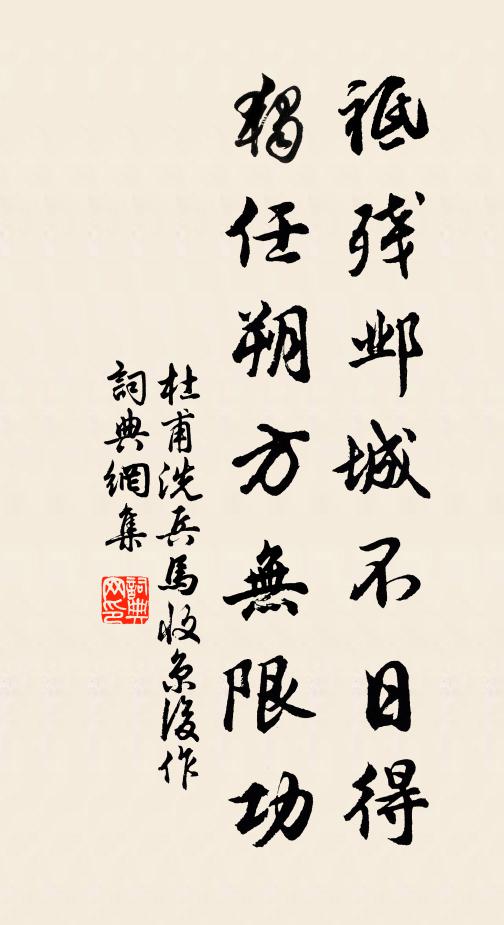 祗残邺城不日得
獨任朔方無限功
杜甫洗兵馬收京後作
詞典網集
詞典
网印